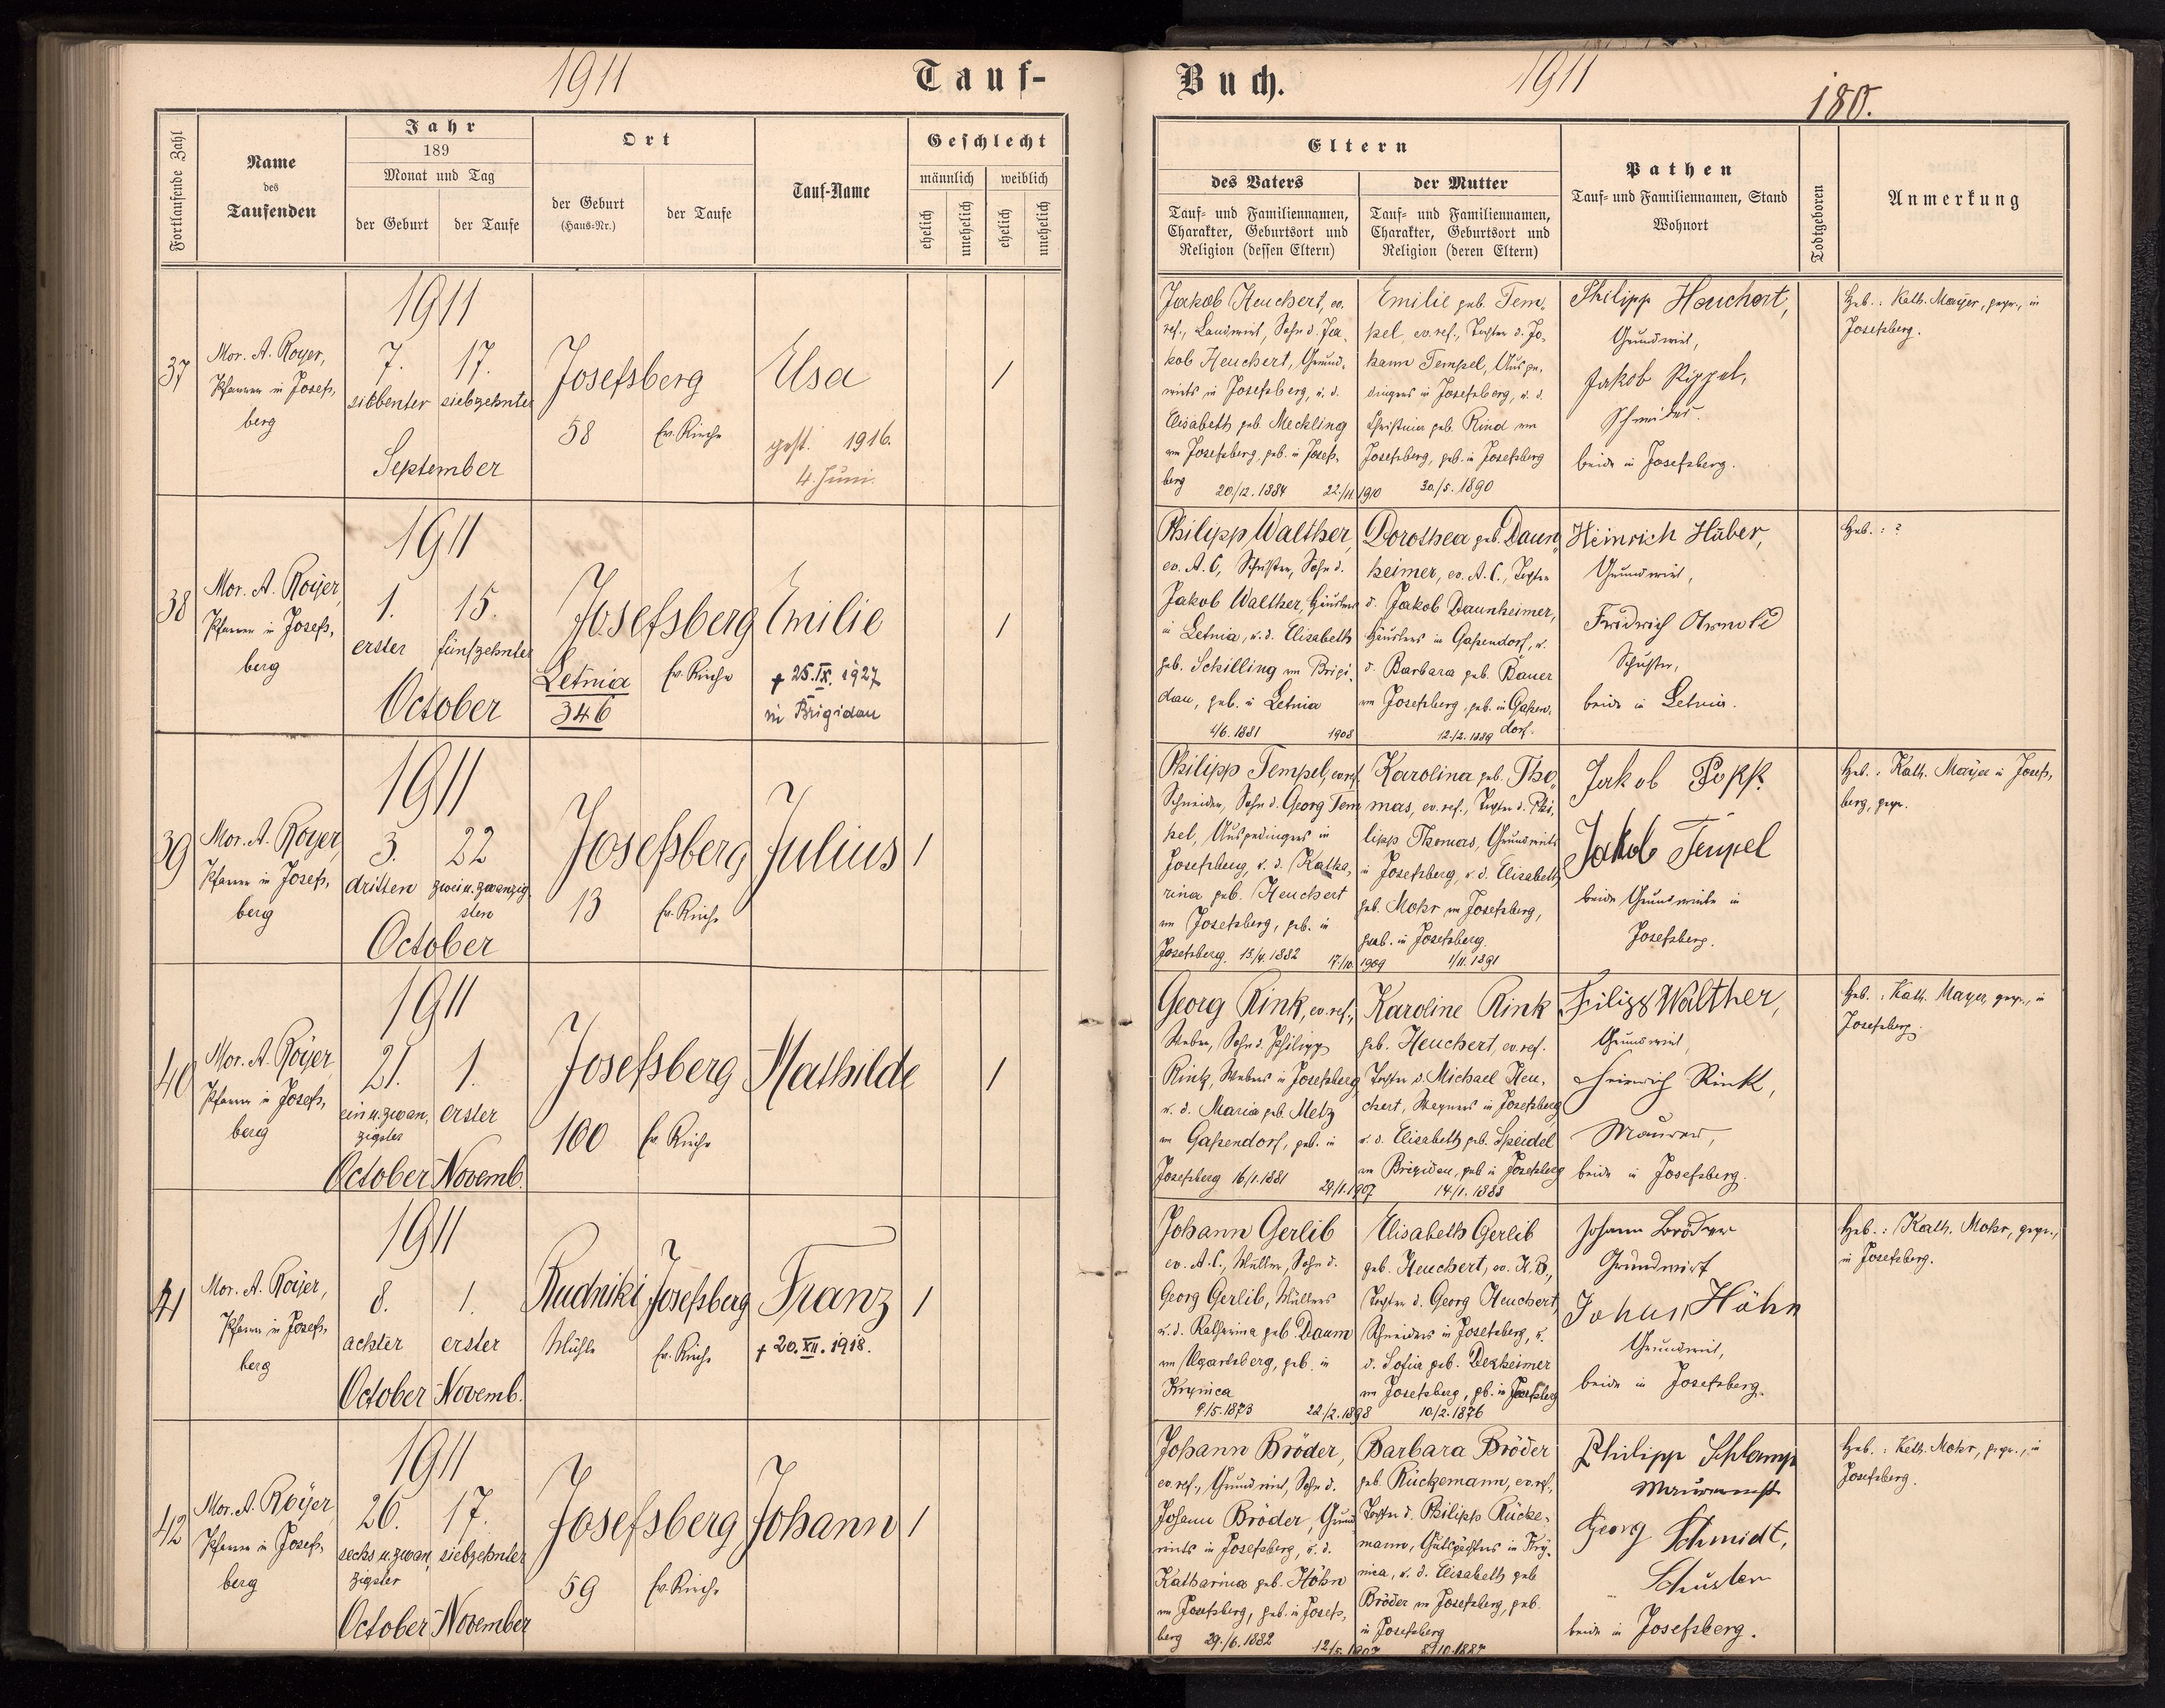 1911
Tauf-
Buch.
1911
180.
Fortlaufende Zahl
Name
des
Taufenden
Jahr
189
Monat und Tag
der Geburt
der Taufe
Ort
der Geburt
(Haus-Nr.)
der Taufe
Tauf-Name
Geschlecht
männlich
weiblich
ehelich
unehelich
ehelich
unehelich
Eltern
des Vaters
Tauf- und Familiennamen,
Charakter, Geburtsort und
Religion (dessen Eltern)
der Mutter
Tauf- und Familiennamen,
Charakter, Geburtsort und
Religion (deren Eltern)
Pathen
Tauf- und Familiennamen, Stand
Wohnort
Todtgeboren
Anmerkung
37
Mor. A. Royer,
Pfarrer in Josefs,
berg
1911
7. 17.
siebenter siebzehnter
September
Josefsberg
58 Ev. Kirche
Elsa
gest. 1916.
4. Juni.
1
Jakob Heuchert, ev.
ref., Landwirt, Sohn d. Ja,
kob Heuchert, Grund,
wirts in Josefsberg, u. d.
Elisabeth geb. Meckling
aus Josefsberg, geb. in Josefs,
berg 20./12. 1884 22./11. 1910
Emilie geb. Tem,
pel, ev. ref., Tochter d. Jo,
hann Tempel, Ausge,
dingers in Josefsberg, u. d.
Christina geb. Rind aus
Josefsberg, geb. in Josefsberg
30./5. 1890
Philipp Heuchert,
Grundwirt,
Jakob Rippel,
Schneider.
beide in Josefsberg.
Heb.: Kath. Mayer, gepr., in
Josefsberg.
38
Mor. A. Royer,
Pfarrer in Josefs,
berg
1911
1. 15.
erster fünfzehnter
October
Josefsberg
Letnia Ev. Kirche
346
Emilie
+ 25.IX. 1927
in Brigidau
1
Philipp Walther,
ev. A. C., Schuster, Sohn d.
Jakob Walther, Häuslers
in Letnia, u. d. Elisabeth
geb. Schilling aus Brigi,
dau, geb. in Letnia
4/6. 1881 1908
Dorothea geb. Daun,
heimer, ev. A. C., Tochter
d. Jakob Daunheimer,
Häuslers in Gassendorf, u.
d. Barbara geb. Bauer
aus Josefsberg, geb. in Gassen,
dorf.
12./2. 1889
Heinrich Huber,
Grundwirt,
Friedrich Arnold
Schuster,
beide in Letnia.
Heb.: ?
39
Mor. A. Royer,
Pfarrer in Josefs,
berg
1911
3. 22
dritten zwei u. zwanzig,
sten
October
Josefsberg
13 Ev. Kirche
Julius
1
Philipp Tempel, ev. ref.
Schneider, Sohn d. Georg Tem
pel, Ausgedingers in
Josefsberg, u. d. Katha,
rina geb. Heuchert
aus Josefsberg, geb. in
Josefsberg. 15/4. 1882 17./10. 1909
Karolina geb. Tho,
mas, ev. ref., Tochter d. Phi,
lipp Thomas, Grundwirts
in Josefsberg, u. d. Elisabeth
geb. Mohr aus Josefsberg,
geb. in Josefsberg.
1/11. 1891
Jakob Popp.
Jakob Tempel
beide Grundwirte in
Josefsberg.
Heb.: Kath. Mayer in Josefs,
berg, gepr.
40
Mor. A. Royer,
Pfarrer in Josefs,
berg
1911
21. 1.
ein u. zwan, erster
zigster
October Novemb.
Josefsberg
100 Ev. Kirche
Mathilde
1
Georg Rink, ev. ref.,
Weber, Sohn d. Philipp
Rink, Webers in Josefsberg,
u. d. Maria geb. Metz
aus Gassendorf, geb. in
Josefsberg 16/1. 1881 29/1. 1907
Karoline Rink
geb. Heuchert, ev. ref.
Tochter d. Michael Heu,
chert, Wagners in Josefsberg
u. d. Elisabeth geb. Speidel
aus Brigidau, geb. in Josefsberg
14./1. 1888
Filipp Walther,
Grundwirt,
Heinrich Rink,
Maurer,
beide in Josefsberg.
Heb.: Kath. Mayer, gepr., in
Josefsberg.
41
Mor. A. Royer,
Pfarrer in Josefs,
berg
1911
8. 1.
achter erster
October Novemb.
Rudniki Josefsberg
Mühle Ev. Kirche
Franz
+ 20. XII. 1918.
1
Johann Gerlib
ev. A. C., Müller, Sohn d.
Georg Gerlib, Müllers
u. d. Katharina geb. Daum
aus Ugartsberg, geb. in
Krynica
9/5. 1873 22/2. 1898
Elisabeth Gerlib
geb. Heuchert, ev. H. B.,
Tochter d. Georg Heuchert,
Schneiders in Josefsberg, u.
d. Sofia geb. Dexheimer
aus Josefsberg, gb. in Josefsberg
10/2. 1876
Johann Bröder
Grundwirt
Johan Höhn
Grundwirt,
beide in Josefsberg.
Heb.: Kath. Mohr, gepr.,
in Josefsberg.
42
Mor. A. Royer,
Pfarrer in Josefs,
berg
1911
26. 17.
sechs u. zwan, siebzehnter
zigster
October November
Josefsberg
59 Ev. Kirche
Johann
1
Johann Bröder,
ev. ref., Grundwirt, Sohn d.
Johann Bröder, Grund
wirts in Josefsberg, u. d.
Katharina geb. Höhn
aus Josefsberg, geb. in Josefs,
berg 29./6. 1882 12/5. 1907
Barbara Bröder
geb. Rückemann, ev. ref.,
Tochter d. Philipp Rücke,
mann, Gutspächters in Kry,
nica, u. d. Elisabeth geb
Bröder aus Josefsberg, geb.
in Josefsberg
8/10. 1887
Philipp Schlamp
Georg Schmidt,
Schuster
beide in Josefsberg.
Heb.: Kath. Mohr, gepr., in
Josefsberg.